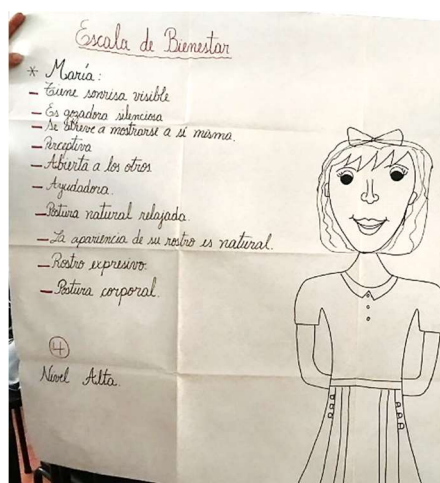 Escala de Bienestar
* María:
– Tiene sonrisa visible
– Es gozadora silenciosa
– Se atreve a mostrarse a sí misma.
– Perceptiva
– Abierta a los otros
– Ayudadora.
– Postura natural relajada
– La apariencia de su rostro es natural.
– Rostro expresivo.
– Postura corporal.
4
Nivel Alta.